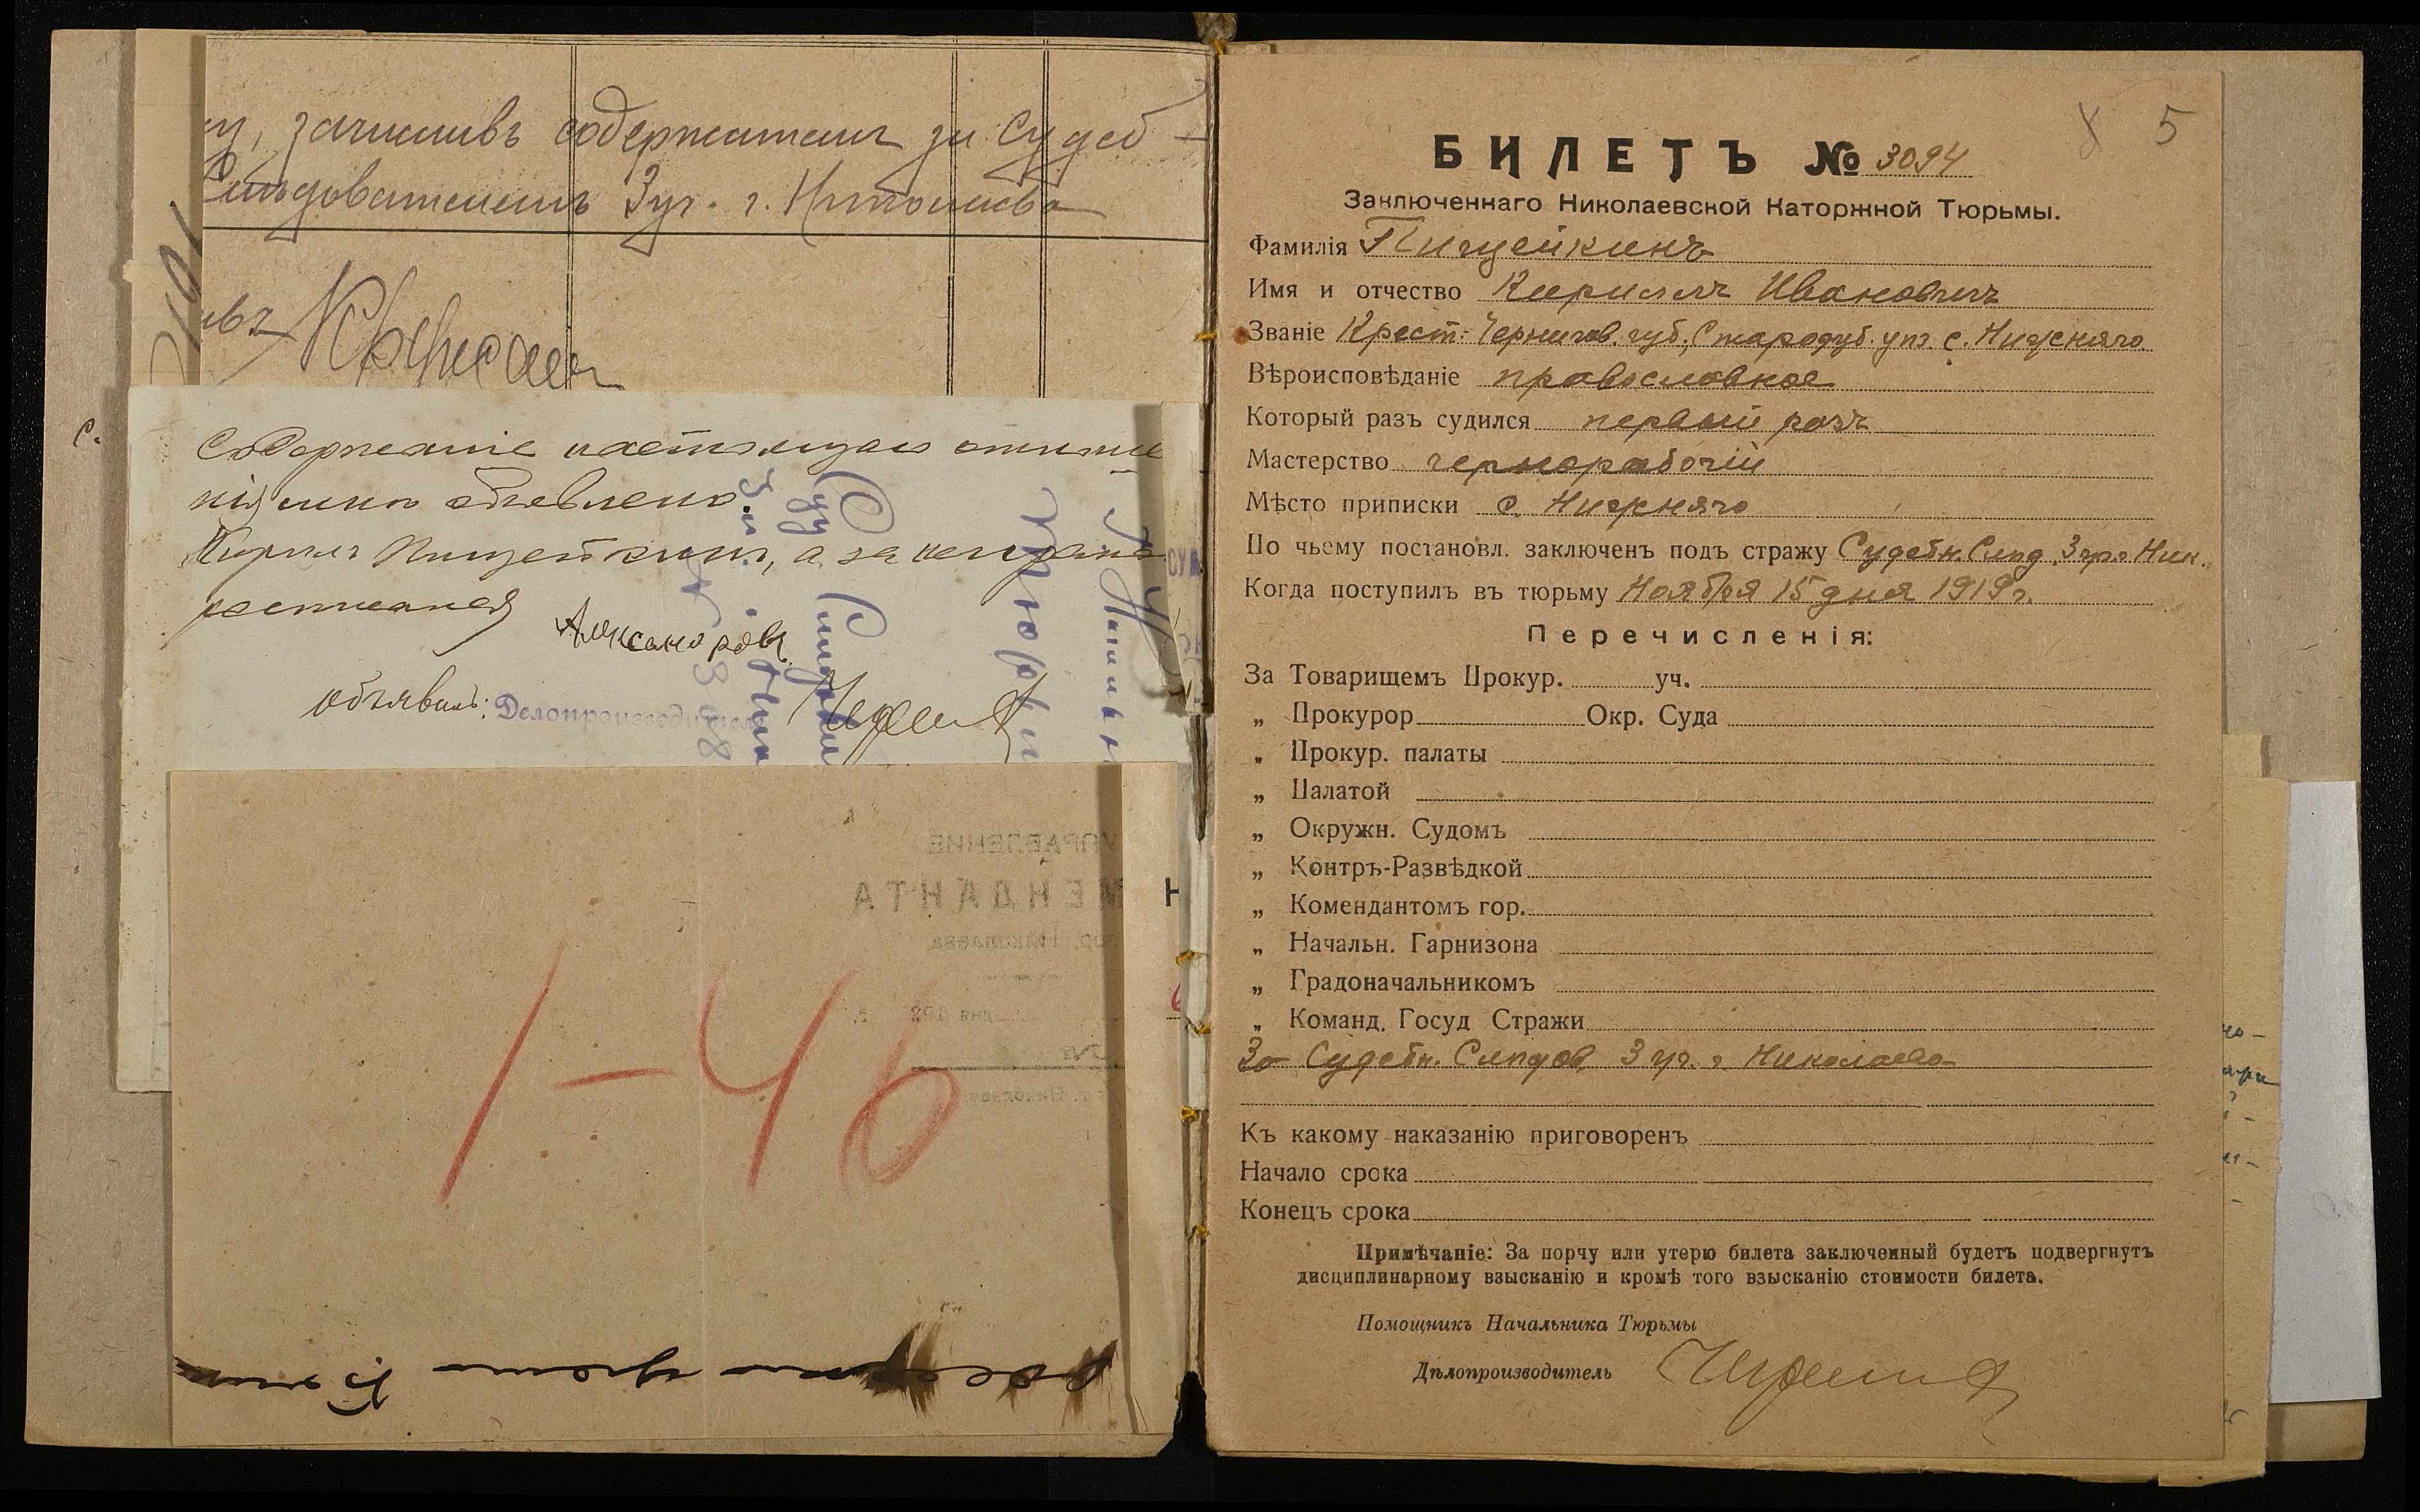 зачисливъ содержаніемъ за Судеб-
Слѣдователемъ 3 уч. г. Николаева
с.
Содержаніе настоящаго отноше
нія мнѣ объявлено.
Кирилъ Пищейкинъ, а за неграмо
росписался
Александровъ
объявилъ: Делопроизводитель
УПРАВЛЕНИЕ
МЕНДАНТА
гор. Николаева
1-46
БИЛЕТЪ № 3094
5
Заключеннаго Николаевской Каторжной Тюрьмы.
Фамилія Пищейкинъ
Имя и отчество Кириллъ Ивановичъ
Званіе Крест. Чернигов. губ., Стародуб. уѣз. с. Нижняго
Вѣроисповѣданіе православное
Который разъ судился первый разъ
Мастерство чернорабочій
Мѣсто приписки с. Нижняго
По чьему постановл. заключенъ подъ стражу Судебн. Слѣд. 3 уч. г. Ник.
Когда поступилъ въ тюрьму Ноября 15 дня 1919 г.
Перечисленія:
За Товарищемъ Прокур. уч.
„ Прокурор Окр. Суда
„ Прокур. палаты
„ Палатой
„ Окружн. Судомъ
„ Контръ-Развѣдкой
„ Комендантомъ гор.
„ Начальн. Гарнизона
„ Градоначальникомъ
„ Команд. Госуд Стражи
За Судебн. Слѣдов. 3 уч. г. Николаева
Къ какому наказанію приговоренъ
Начало срока
Конецъ срока
Примѣчаніе: За порчу или утерю билета заключенный будетъ подвергнутъ
дисциплинарному взысканію и кромѣ того взысканію стоимости билета.
Помощникъ Начальника Тюрьмы
Дѣлопроизводитель